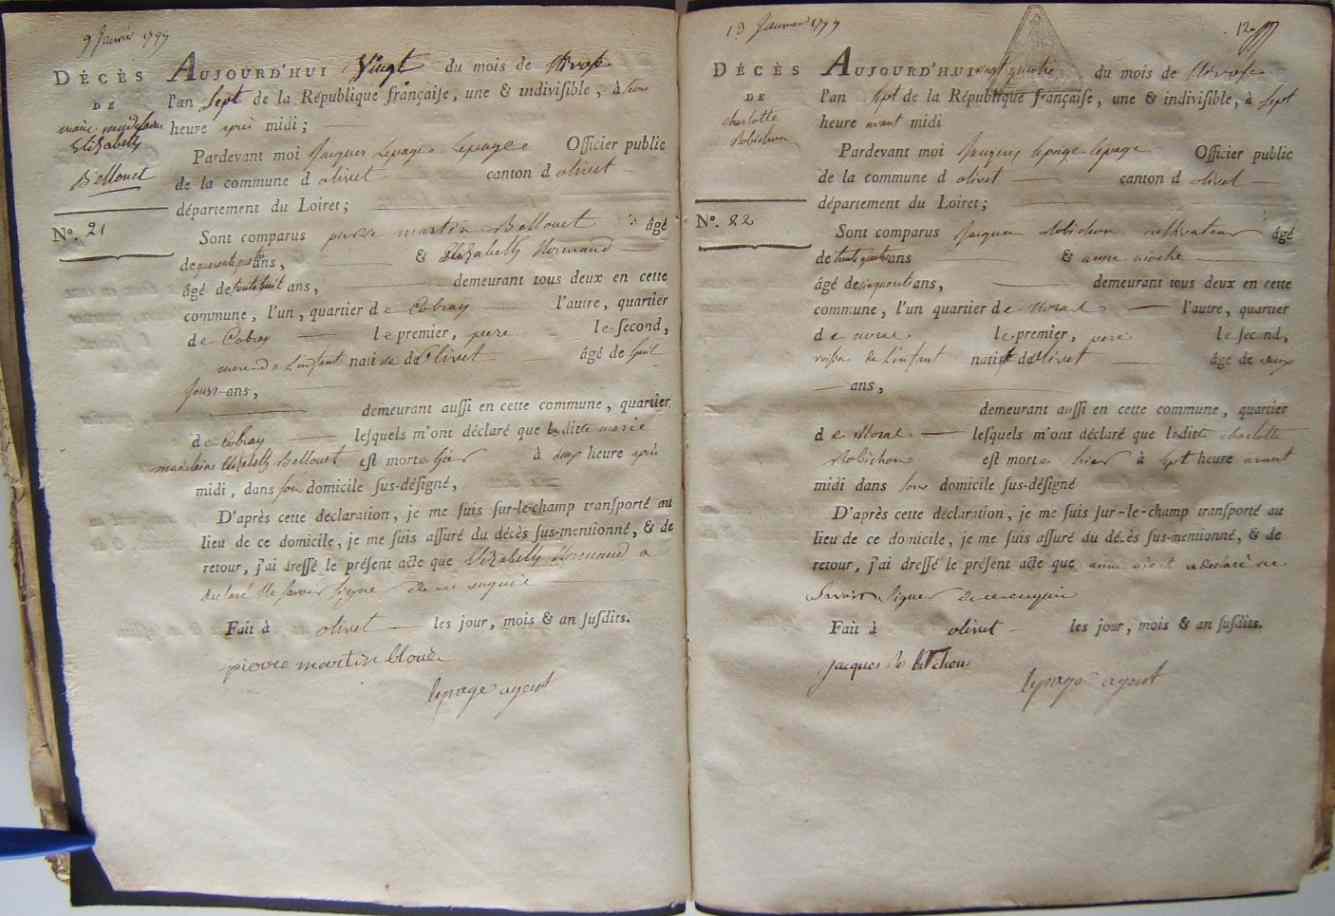 9 Janvier 1799
DÉCÈS
DE
marie magdelaine
Elizabeth
Bellouet
N°. 21
AUJOURD'HUI Vingt du mois de Nivose
l'an Sept de la République françaiſe, une & indiviſible, à
heure après midi;
Pardevant moi Jacques Lepage Lepage Officier public
de la commune d olivet canton d olivet
département du Loiret;
Sont comparus pierre martin Bellouet âgé
de ans, & Elizabeth Normand
âgé de trente huit ans, demeurant tous deux en cette
commune, l'un, quartier de Cobray l'autre, quartier
de Cobray le premier, pere le ſecond,
mere de L'enfant natif de Olivet âgé de huit
jours ans,
demeurant auſſi en cette commune, quartier
de Cobray leſquels m'ont déclaré que la ditte marie
magdelaine Elizabeth Bellouet eſt morte hier à deux heure après
midi, dans ſon domicile ſus-déſigné,
D'après cette déclaration, je me ſuis ſur-le-champ tranſporté au
lieu de ce domicile, je me ſuis aſſuré du décès ſus-mentionné, & de
retour, j'ai dreſſé le préſent acte que Elizabeth Normand a
declaré ne Savoir Signer de ce enquise
Fait à olivet les jour, mois & an ſuſdits.
pierre martin bloue
lepage agent
13 Janvier 1799
DÉCÈS
DE
charlotte
Robichon
N°. 22
AUJOURD'HUI vingt quatre du mois de Nivose
l'an Sept de la République françaiſe, une & indiviſible, à Sept
heure avant midi
Pardevant moi Jacques lepage lepage Officier public
de la commune d olivet canton d olivet
département du Loiret;
Sont comparus Jacques Robichon cultivateur âgé
de trente quatre ans & anne
âgé de cinquante ans, demeurant tous deux en cette
commune, l'un quartier de l'autre, quartier
de le premier, pere le ſecond,
de L'enfant natif de olivet âgé de deux
ans,
demeurant auſſi en cette commune, quartier
de leſquels m'ont déclaré que laditte charlotte
Robichon eſt morte hier à Sept heure avant
midi dans ſon domicile ſus-déſigné
D'après cette déclaration, je me ſuis ſur-le-champ tranſporté au
lieu de ce domicile, je me ſuis aſſuré du décès ſus-mentionné, & de
retour, j'ai dreſſé le préſent acte que anne a declaré ne
Savoir Signer de ce enquise
Fait à olivet les jour, mois & an ſuſdits.
jacques
lepage agent